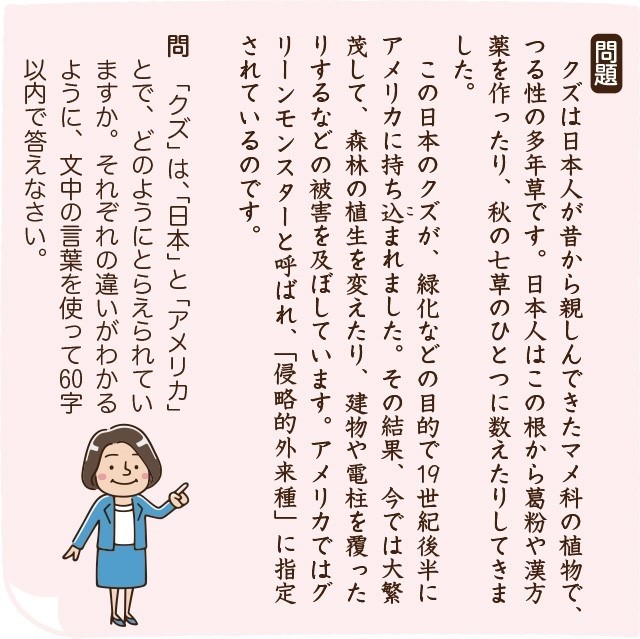 問題
クズは日本人が昔から親しんできたマメ科の植物で、
つる性の多年草です。日本人はこの根から葛粉や漢方
薬を作ったり、秋の七草のひとつに数えたりしてきま
した。
この日本のクズが、緑化などの目的で19世紀後半に
アメリカに持ち込まれました。その結果、今では大繁
茂して、森林の植生を変えたり、建物や電柱を覆った
りするなどの被害を及ぼしています。アメリカではグ
リーンモンスターと呼ばれ、「侵略的外来種」に指定
されているのです。
問 「クズ」は、「日本」と「アメリカ」
とで、どのようにとらえられてい
ますか。それぞれの違いがわかる
ように、文中の言葉を使って60字
以内で答えなさい。